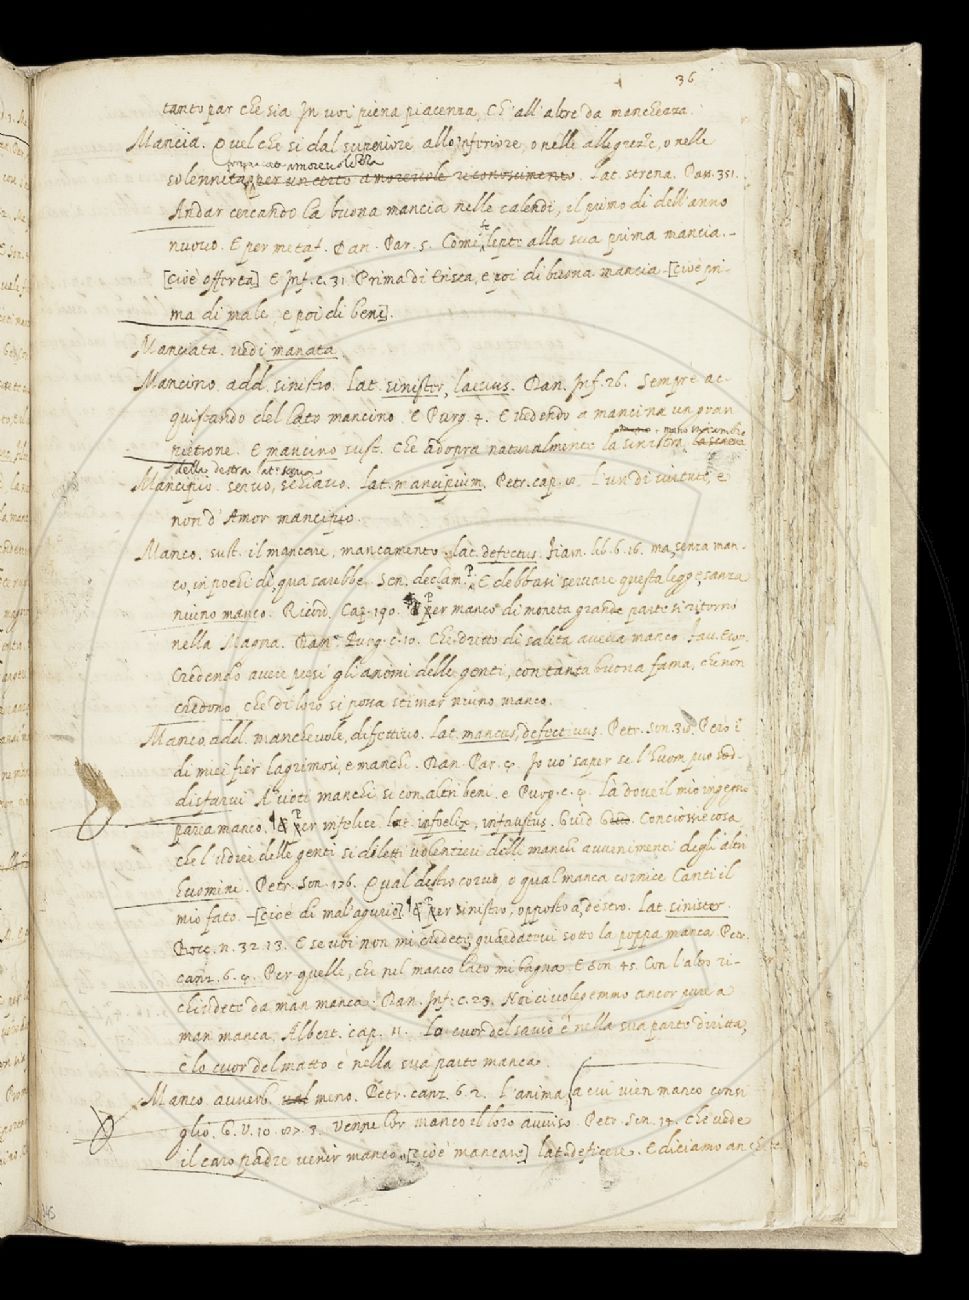 36
tanto par che sia In voi piena piacenza, Ch'all'altre da mancheaza.
Mancia. Quel che si dal superiore allo inferiore, o nelle allegrezze, o nelle
per una amorevolezza
solennità, per un certo amorevole reconoscimento. Lat. strena. Pan. 351.
Andar cercando la buona mancia nelle calendi, il primo dì dell'anno
nuovo. E per metaf. Dan. Par. 5. Come lepte alla sua prima mancia. –
[cioè offerta] E Inf. c. 31. Prima di trista, e poi di buona mancia. [cioè pri-
ma di male, e poi di beni].
Manciata. vedi manata.
Mancino. add. sinistro. Lat. sinister, laevus. Dan. Inf. 26. Sempre ac-
quistando del lato mancino. E Purg. 4. E vedendo a mancina un gran
pietrone. E mancino sust. Che adopra naturalmente la sinistra
della destra lat. scaeva
Mancipio. servo, schiavo. Lat. mancipium. Petr. cap. 10. L'un di virtute, e
non d'Amor mancipio.
Manco. sust. il mancare, mancamento. lat. defectus. Fiam. lib. 6. 16. ma, senza man-
co, in pochi dì, qua sarebbe. Sen. declam. P. E debbasi servare questa legge sanza
niuno manco. Ricord. Cap. 190. E per manco di moneta grande parte si ritornò
nella Magna. Dan. Purg. c. 10. Che dritto di salita aveva manco. Fav. Esop.
Credendo avere presi gli animi delle genti, con tanta buona fama, che non
credono che di loro si possa stimar niuno manco.
Manco add. manchevole, difettivo. Lat. mancus, defectivus. Petr. Son. 310. Però i
dì miei fier lagrimosi, e manchi. Dan. Par. 4. Io vo' saper se l'huom può sod-
disfarvi A' voti manchi si con altri beni. e Purg. c. 4. Là dove il mio ingegno
parea manco. E per infelice lat. infoelix, infaustus. Guid G. Conciossiecosa
che l'udire delle genti si diletti volentieri delli manchi avvenimenti degli altri
huomini. Petr. Son. 176. Qual destro corvo, o qual manca cornice Canti il
mio fato. – [cioè di mal'agurio]. E per sinistro, opposto a destro. Lat. sinister.
Bocc. n. 32. 13. E se voi non mi credete, guardatevi sotto la poppa manca. Petr.
canz. 6. 4. Per quelle, che nel manco lato mi bagna. E Son. 45. Con l'altro ri-
chiudete da man manca. Dan. Inf. c. 23. Noi ci volgemmo ancor pure a
man manca. Albert. cap. 11. Lo cuor del savio è nella sua parte diritta,
e lo cuor del matto è nella sua parte manca.
Manco. avverb. val meno. Petr. canz. 6. 2. L'anima, a cui vien manco consi
glio. G. V. 10. 3. venne lor manco il loro avviso. Petr. Son. 14. che vede
il caro padre venir manco. [cioè mancare] lat. deficere. E diciamo anche